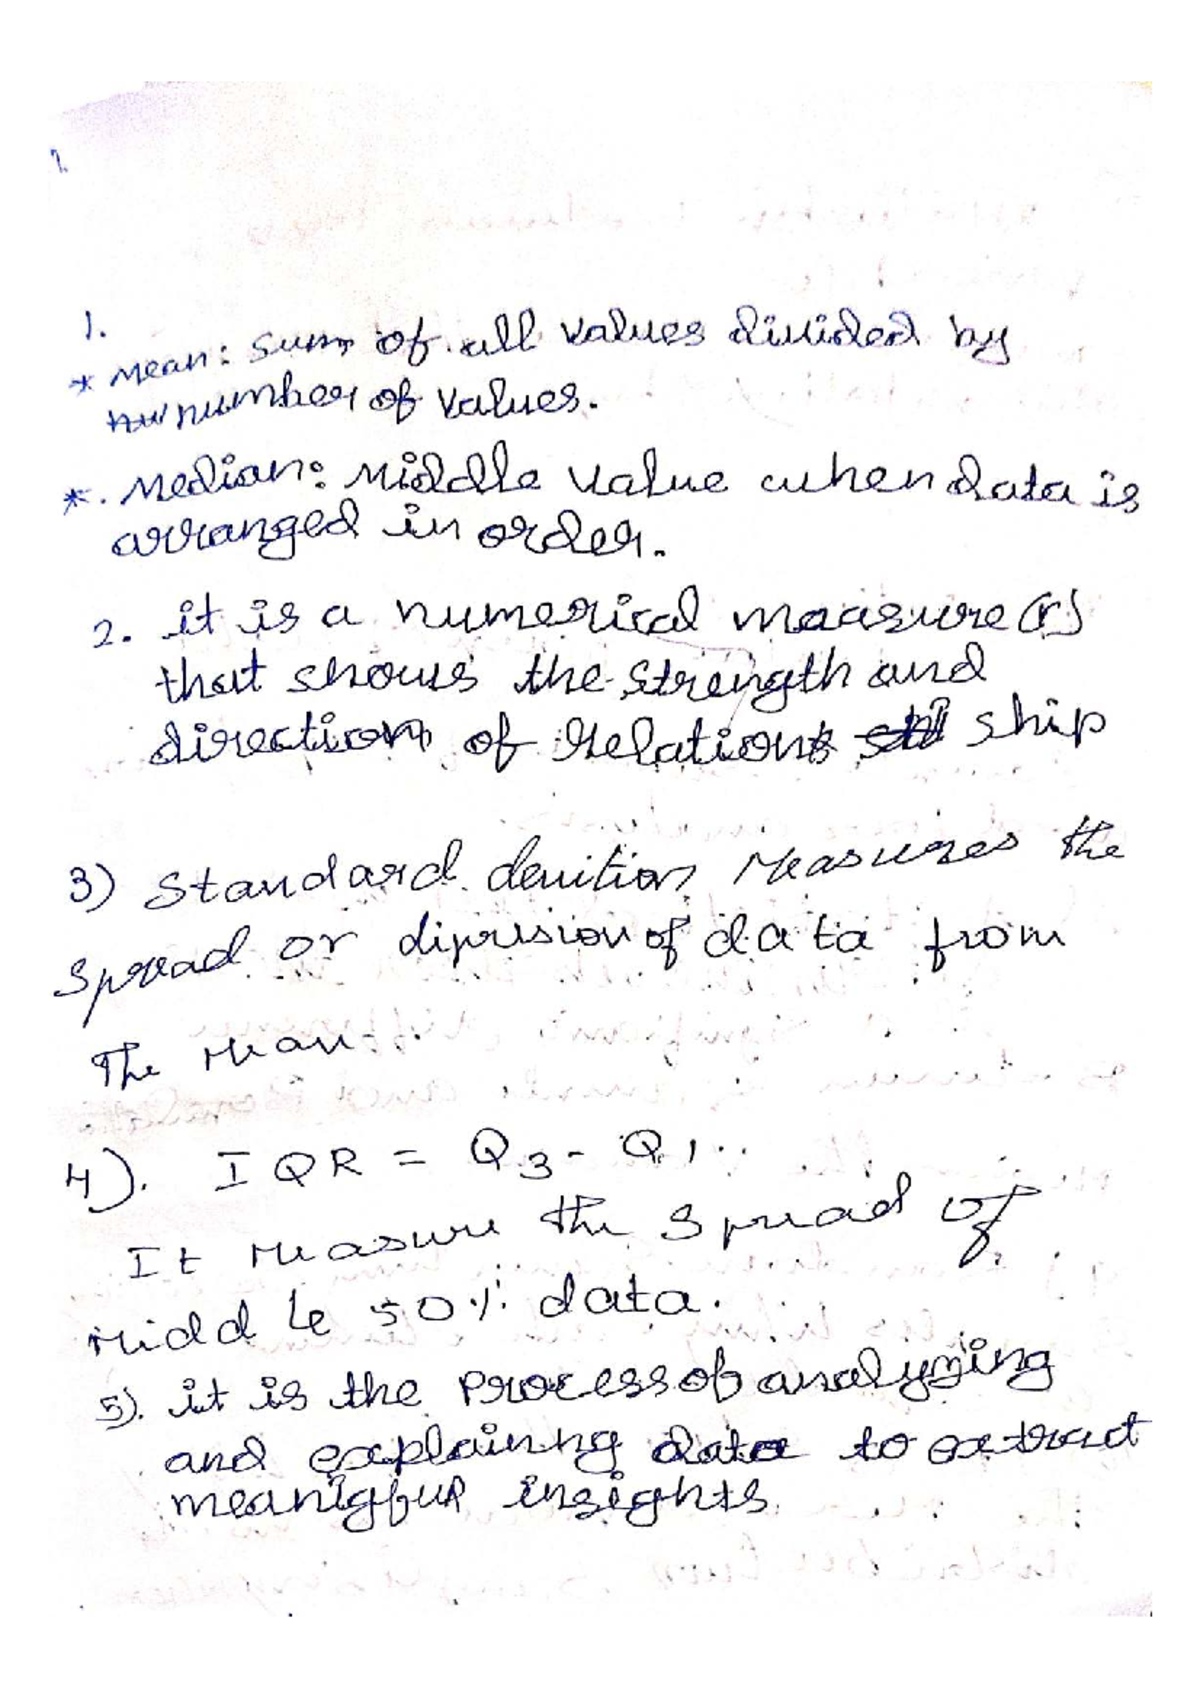 1.
1.
* Mean: Sum of all values divided by
number of values.
*. Median: Middle value when data is
arranged in order.
2. it is a numerical measure (r)
that shows the strength and
direction of relation ship
3) Standard devition Measures the
spread or diprision of data from
The Mean.
4). IQR = Q3 - Q1.
It Measure the spread of
Midd le 50% data.
5). it is the Process of analyzing
and explaining data to extract
meanigful insights.